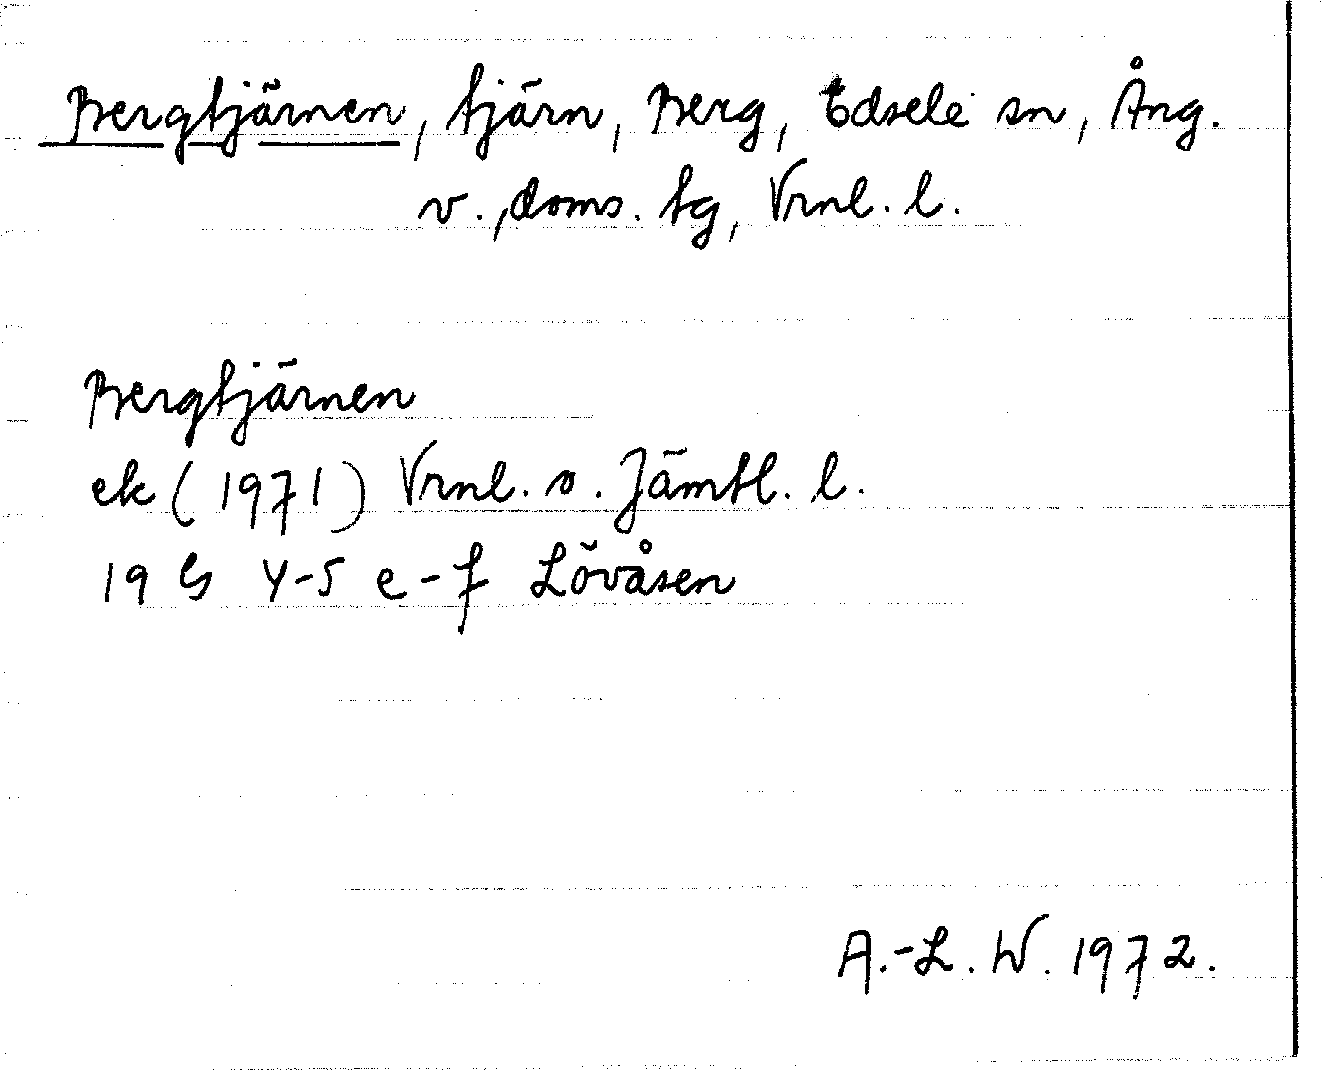 Bergtjärnen, tjärn, Berg, Edsele sn, Ång.
v., doms. tg, Vrnl. l.
Bergtjärnen
ek (1971) Vrnl. o. Jämtl. l.
19 G 4-5 e-f Lövåsen
A.-L. W. 1972.